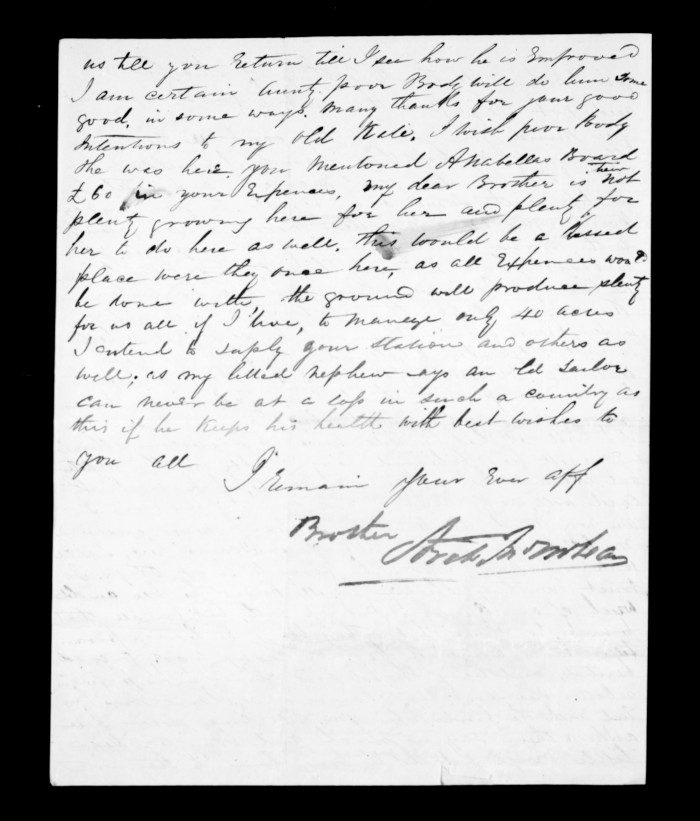 us till you Return till I see how he is Emproved
I am certain Aunty poor Body will do him some
good, in some ways. Many thanks for your good
Intentions to my Old Kate. I wish poor Body
She was here, you Mentoned Anabellas Board
£60 in your Expences, my dear Brother is their not
plenty growing here for her and plenty for
her to do here as well. this would be a blessed
place were they once here, as all Expences would
be done with, the ground will produce plenty
for us all if I live, to Manage only 40 acres
I entend to Suply your Station and others as
well; as my litted nephew says an Old Sailor
can never be at a loss in such a country as
this if he Keeps his health with best wishes to
you all
I Remain your Ever aff
Brother